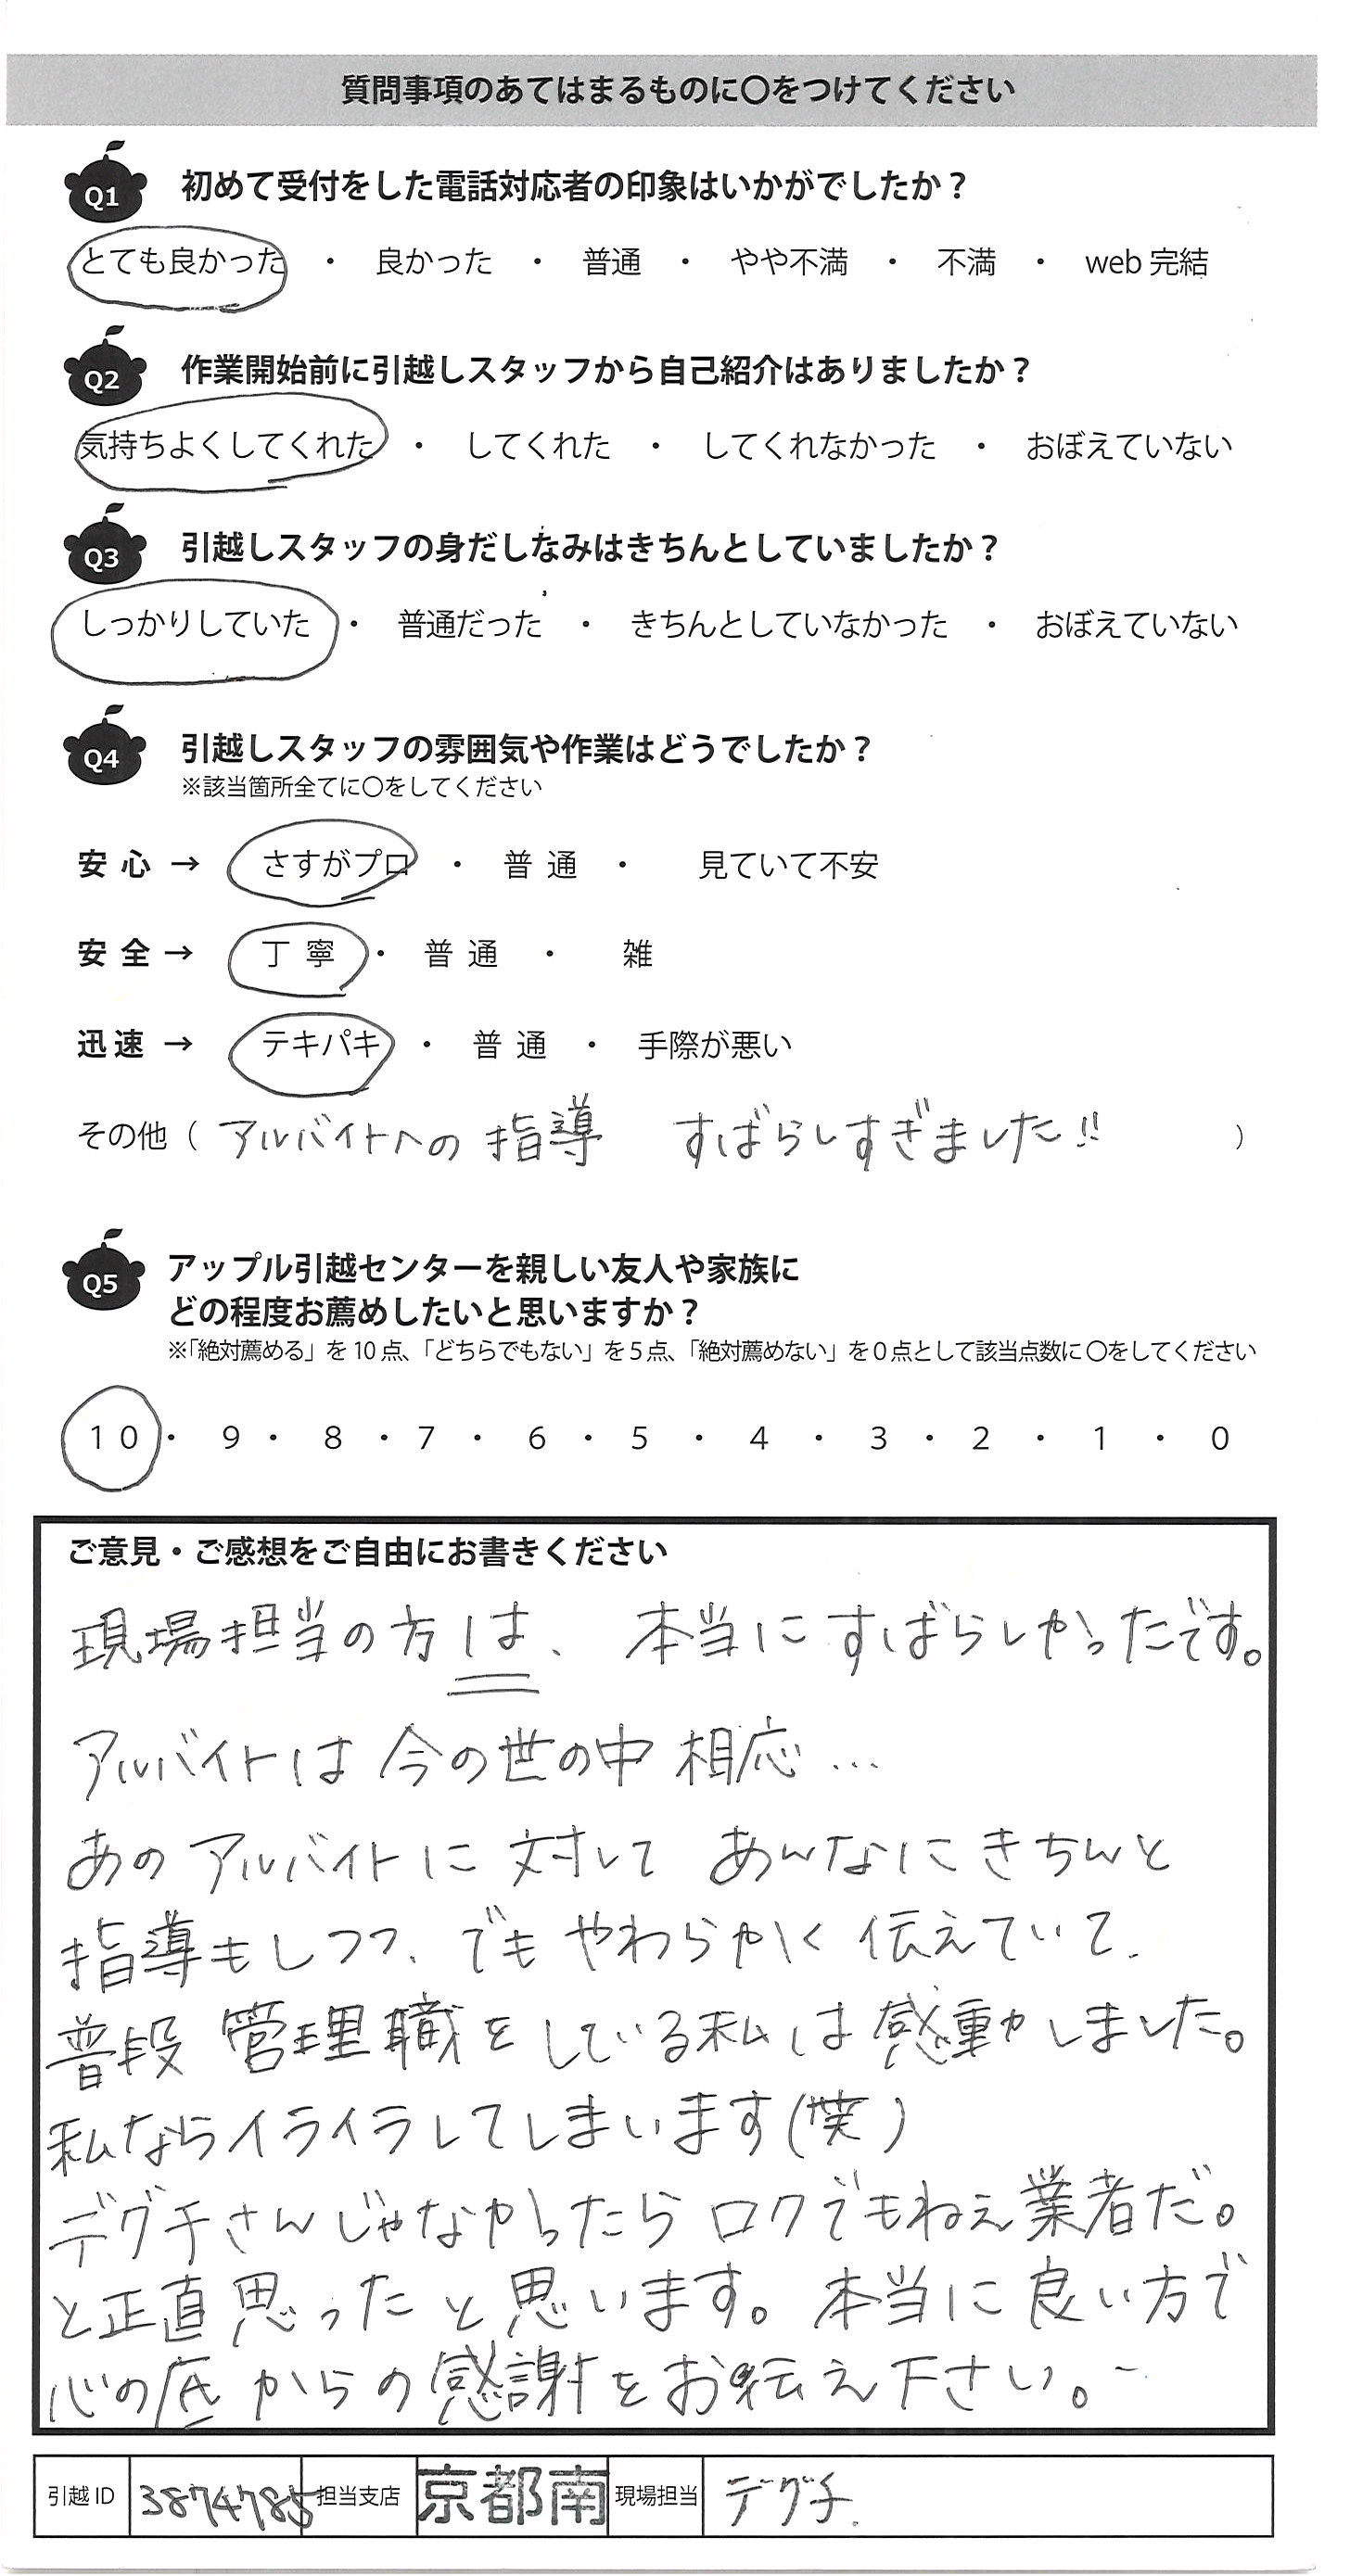 質問事項のあてはまるものに〇をつけてください
Q1 初めて受付をした電話対応者の印象はいかがでしたか？
とても良かった ・ 良かった ・ 普通 ・ やや不満 ・ 不満 ・ web完結
Q2 作業開始前に引越しスタッフから自己紹介はありましたか？
気持ちよくしてくれた ・ してくれた ・ してくれなかった ・ おぼえていない
Q3 引越しスタッフの身だしなみはきちんとしていましたか？
しっかりしていた ・ 普通だった ・ きちんとしていなかった ・ おぼえていない
Q4 引越しスタッフの雰囲気や作業はどうでしたか？
※該当箇所全てに〇をしてください
安心 → さすがプロ ・ 普通 ・ 見ていて不安
安全 → 丁寧 ・ 普通 ・ 雑
迅速 → テキパキ ・ 普通 ・ 手際が悪い
その他（ アルバイトへの指導 すばらしすぎました!! ）
Q5 アップル引越センターを親しい友人や家族に
どの程度お薦めしたいと思いますか？
※「絶対薦める」を10点、「どちらでもない」を5点、「絶対薦めない」を0点として該当点数に〇をしてください
10 ・ 9 ・ 8 ・ 7 ・ 6 ・ 5 ・ 4 ・ 3 ・ 2 ・ 1 ・ 0
ご意見・ご感想をご自由にお書きください
現場担当の方は、本当にすばらしかったです。
アルバイトは今の世の中相応…
あのアルバイトに対してあんなにきちんと
指導もしつつ、でもやわらかく伝えていて、
普段管理職をしている私は感動しました。
私ならイライラしてしまいます(笑)
デグチさんじゃなかったらロクでもねぇ業者だ。
と正直思ったと思います。本当に良い方で
心の底からの感謝をお伝え下さい。
引越ID 3874785 担当支店 京都南 現場担当 デグチ